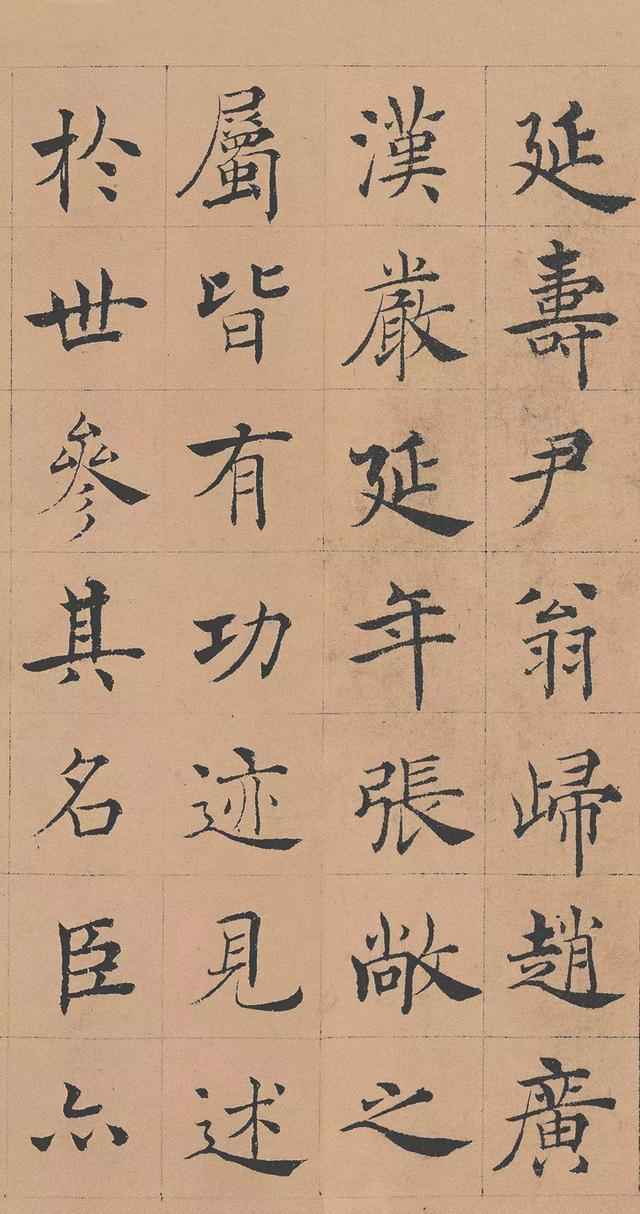 延壽尹翁歸趙廣
漢嚴延年張敞之
屬皆有功迹見述
於世參其名臣六